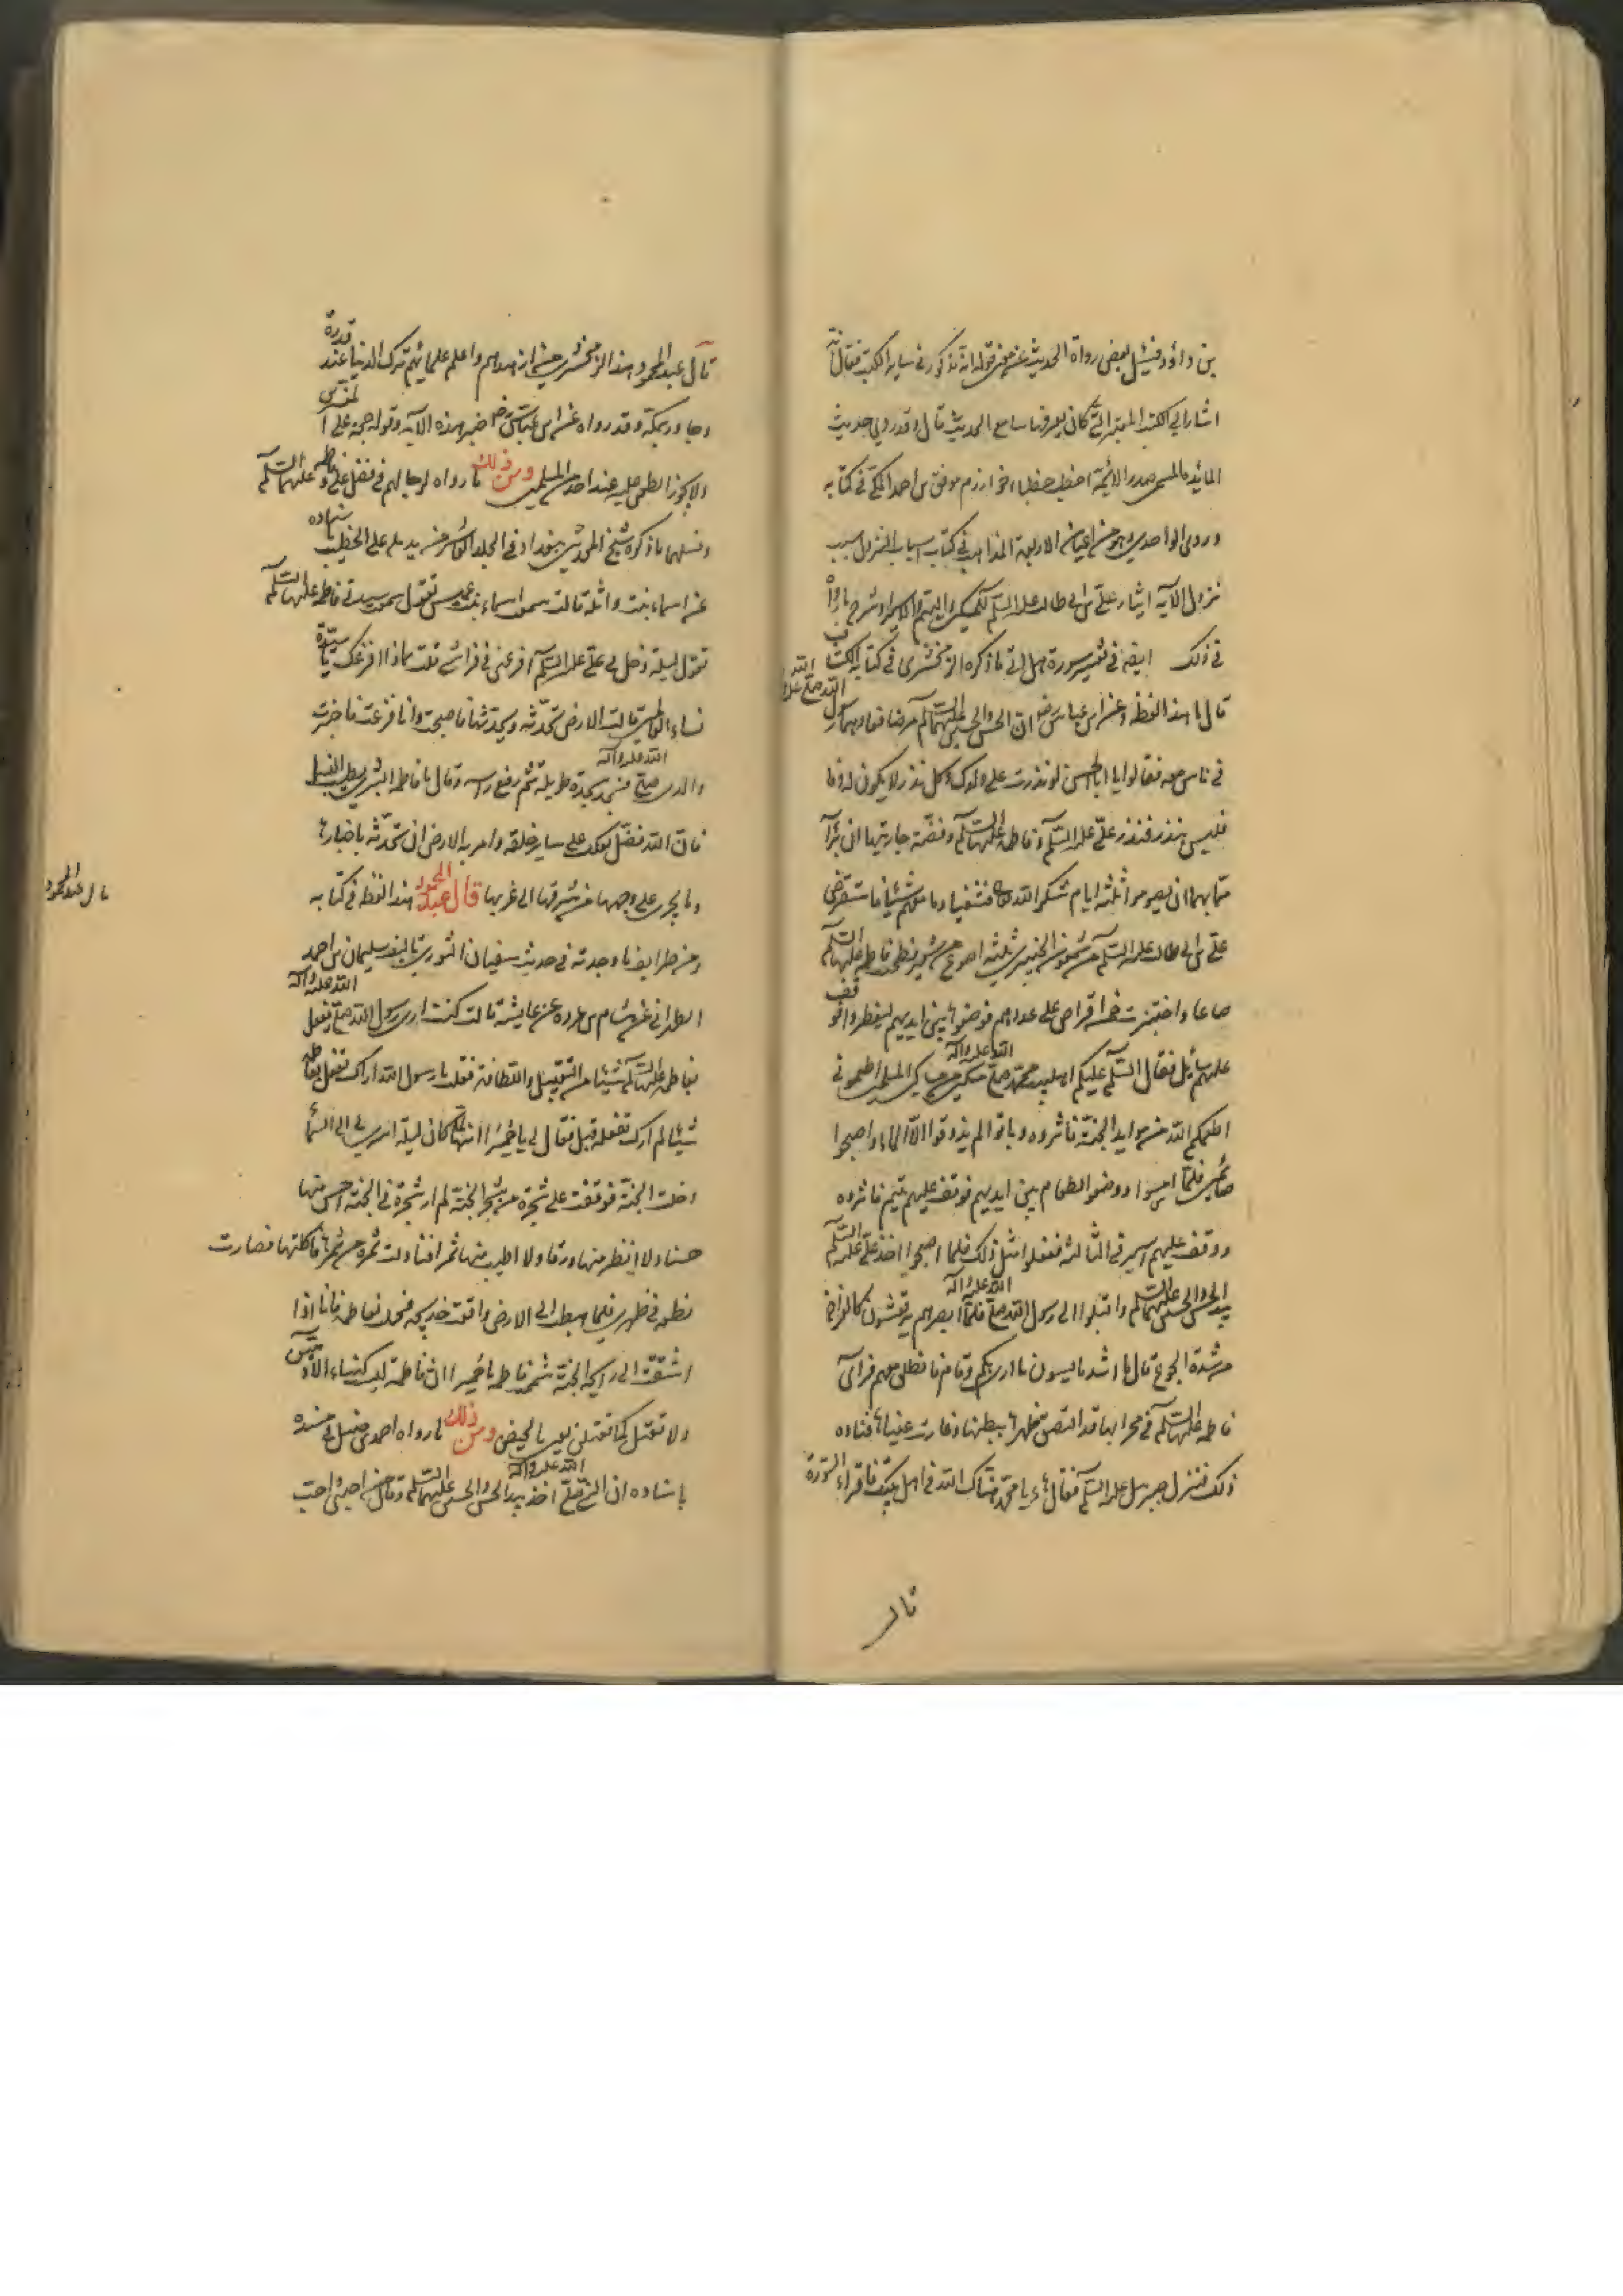 بن داود فسئل بعض رواة الحديث عن معنى قوله انه مذكور في ساير الكتب فقال انه
اشار الى الكتب المعتبرة التي كان يعرفها سامع الحديث قال وقد روى حديث
المائدة المسمى صدر الائمة اخطب خطباء خوارزم موفق بن احمد المكي في كتابه
وروى الواحدي وهو من اعيان الاربعة المذاهب في كتاب اسباب النزول سبب
نزول الآية ايثار علي بن ابي طالب عليه السلم المسكين واليتيم والاسير وشرح ما رووا
في ذلك ايضا في تفسير سورة هل اتى ما ذكره الزمخشري في كتاب الكشاف
قال ما هذا لفظه وعن ابن عباس رض ان الحسن والحسين عليهما السلم مرضا فعادهما رسول الله صلى الله عليه
في ناس معه فقالوا يا ابا الحسن لو نذرت على ولدك وكل نذر لا يكون له وفا
فليس بنذر فنذر علي عليه السلم وفاطمة عليها السلم وفضة جاريتهما ان برآ
مما بهما ان يصوموا ثلثة ايام شكرا لله فشفيا وما معهم شئ فاستقرض
علي بن ابي طالب عليه السلم من شمعون الخيبري ثلثة اصوع من شعير فطحنت فاطمة عليها السلم
صاعا واختبزت خمسة اقراص على عددهم فوضعوها بين ايديهم ليفطروا فوقف
عليهم سائل فقال السلم عليكم اهل بيت محمد صلى الله عليه واله مسكين من مساكين المسلمين اطعموني
اطعمكم الله من موايد الجنة فاثروه وباتوا لم يذوقوا الا الماء واصبحوا
صائمين فلما امسوا ووضعوا الطعام بين ايديهم فوقف عليهم يتيم فاثروه
ووقف عليهم اسير في الثالثة ففعلوا مثل ذلك فلما اصبحوا اخذ علي عليه السلم
بيد الحسن والحسين عليهما السلم واقبلوا الى رسول الله صلى الله عليه واله فلما ابصرهم يرتعشون كالفراخ
من شدة الجوع قال ما اشد ما يسوءني ما ارى بكم وقام فانطلق معهم فرأى
فاطمة عليها السلم في محرابها قد التصق ظهرها ببطنها وغارت عيناها فساءه
ذلك فنزل جبرئيل عليه السلم فقال خذ يا محمد هناك الله في اهل بيتك فاقراءه السورة
قال
قال عبد المحمود هذا الزمخشري من ازهدهم واعلم علمائهم ترك الدنيا عند قدرة
وجاور بمكة وقد رواه عن ابن عباس رض مفسر هذه الآية وقوله حجة على المفسرين
ولا يجوز الطعن عليه عند احد من المسلمين ومن ذلك ما رواه رجالهم في فضل علي وفاطمة عليهما السلم
ونسلهما ما ذكره شيخ المحدثين ببغداد في المجلد العاشر من تذييله على الخطيب باسناده
عن اسماء بنت واثلة قالت سمعت اسماء بنت عميس تقول سمعت سيدتي فاطمة عليها السلم
تقول ليلة دخل بي علي عليه السلم افزعني في فراشي قلت بماذا افزعك يا سيدة
نساء العالمين قالت الارض تحدثه ويحدثها فاصبحت وانا فزعة فاخبرت
والدي صلى الله عليه واله فسجد سجدة طويلة ثم رفع راسه وقال يا فاطمة ابشري بطيب النسل
فان الله فضل بعلك على ساير خلقه وامر به الارض ان تحدثه باخبارها
وما يجرى على وجهها من شرقها الى غربها قال عبد المحمود هذا لفظه في كتابه
ومن طرايف ما وجدته في حديث سفيان الثوري تاليف سليمان بن احمد
الطبراني عن هشام بن عروة عن عايشة قالت كنت ارى رسول الله صلى الله عليه واله يفعل
بفاطمة عليها السلم شيئا من التقبيل والالطاف فقلت يا رسول الله اراك تفعل بفاطمة
شيئا لم ارك تفعله قبل فقال لي يا حميرا انه لما كان ليلة اسري بي الى السماء
دخلت الجنة فوقفت على شجرة من شجر الجنة لم ار شجرة في الجنة احسن منها
حسنا ولا انظر منها ورقا ولا اطيب منها ثمرا فتناولت ثمرة من ثمرها فاكلتها فصارت
نطفة في ظهري فلما هبطت الى الارض واقعت خديجة فحملت بفاطمة فانا اذا
اشتقت الى رايحة الجنة شممت فاطمة يا حميرا ان فاطمة ليست كنساء الادميين
ولا تعتل كما تعتلن يعني بالحيض ومن ذلك ما رواه احمد بن حنبل في مسنده
باسناده ان النبي صلى الله عليه واله اخذ بيد الحسن والحسين عليهما السلم وقال من احبني واحب
قال عبد المحمود